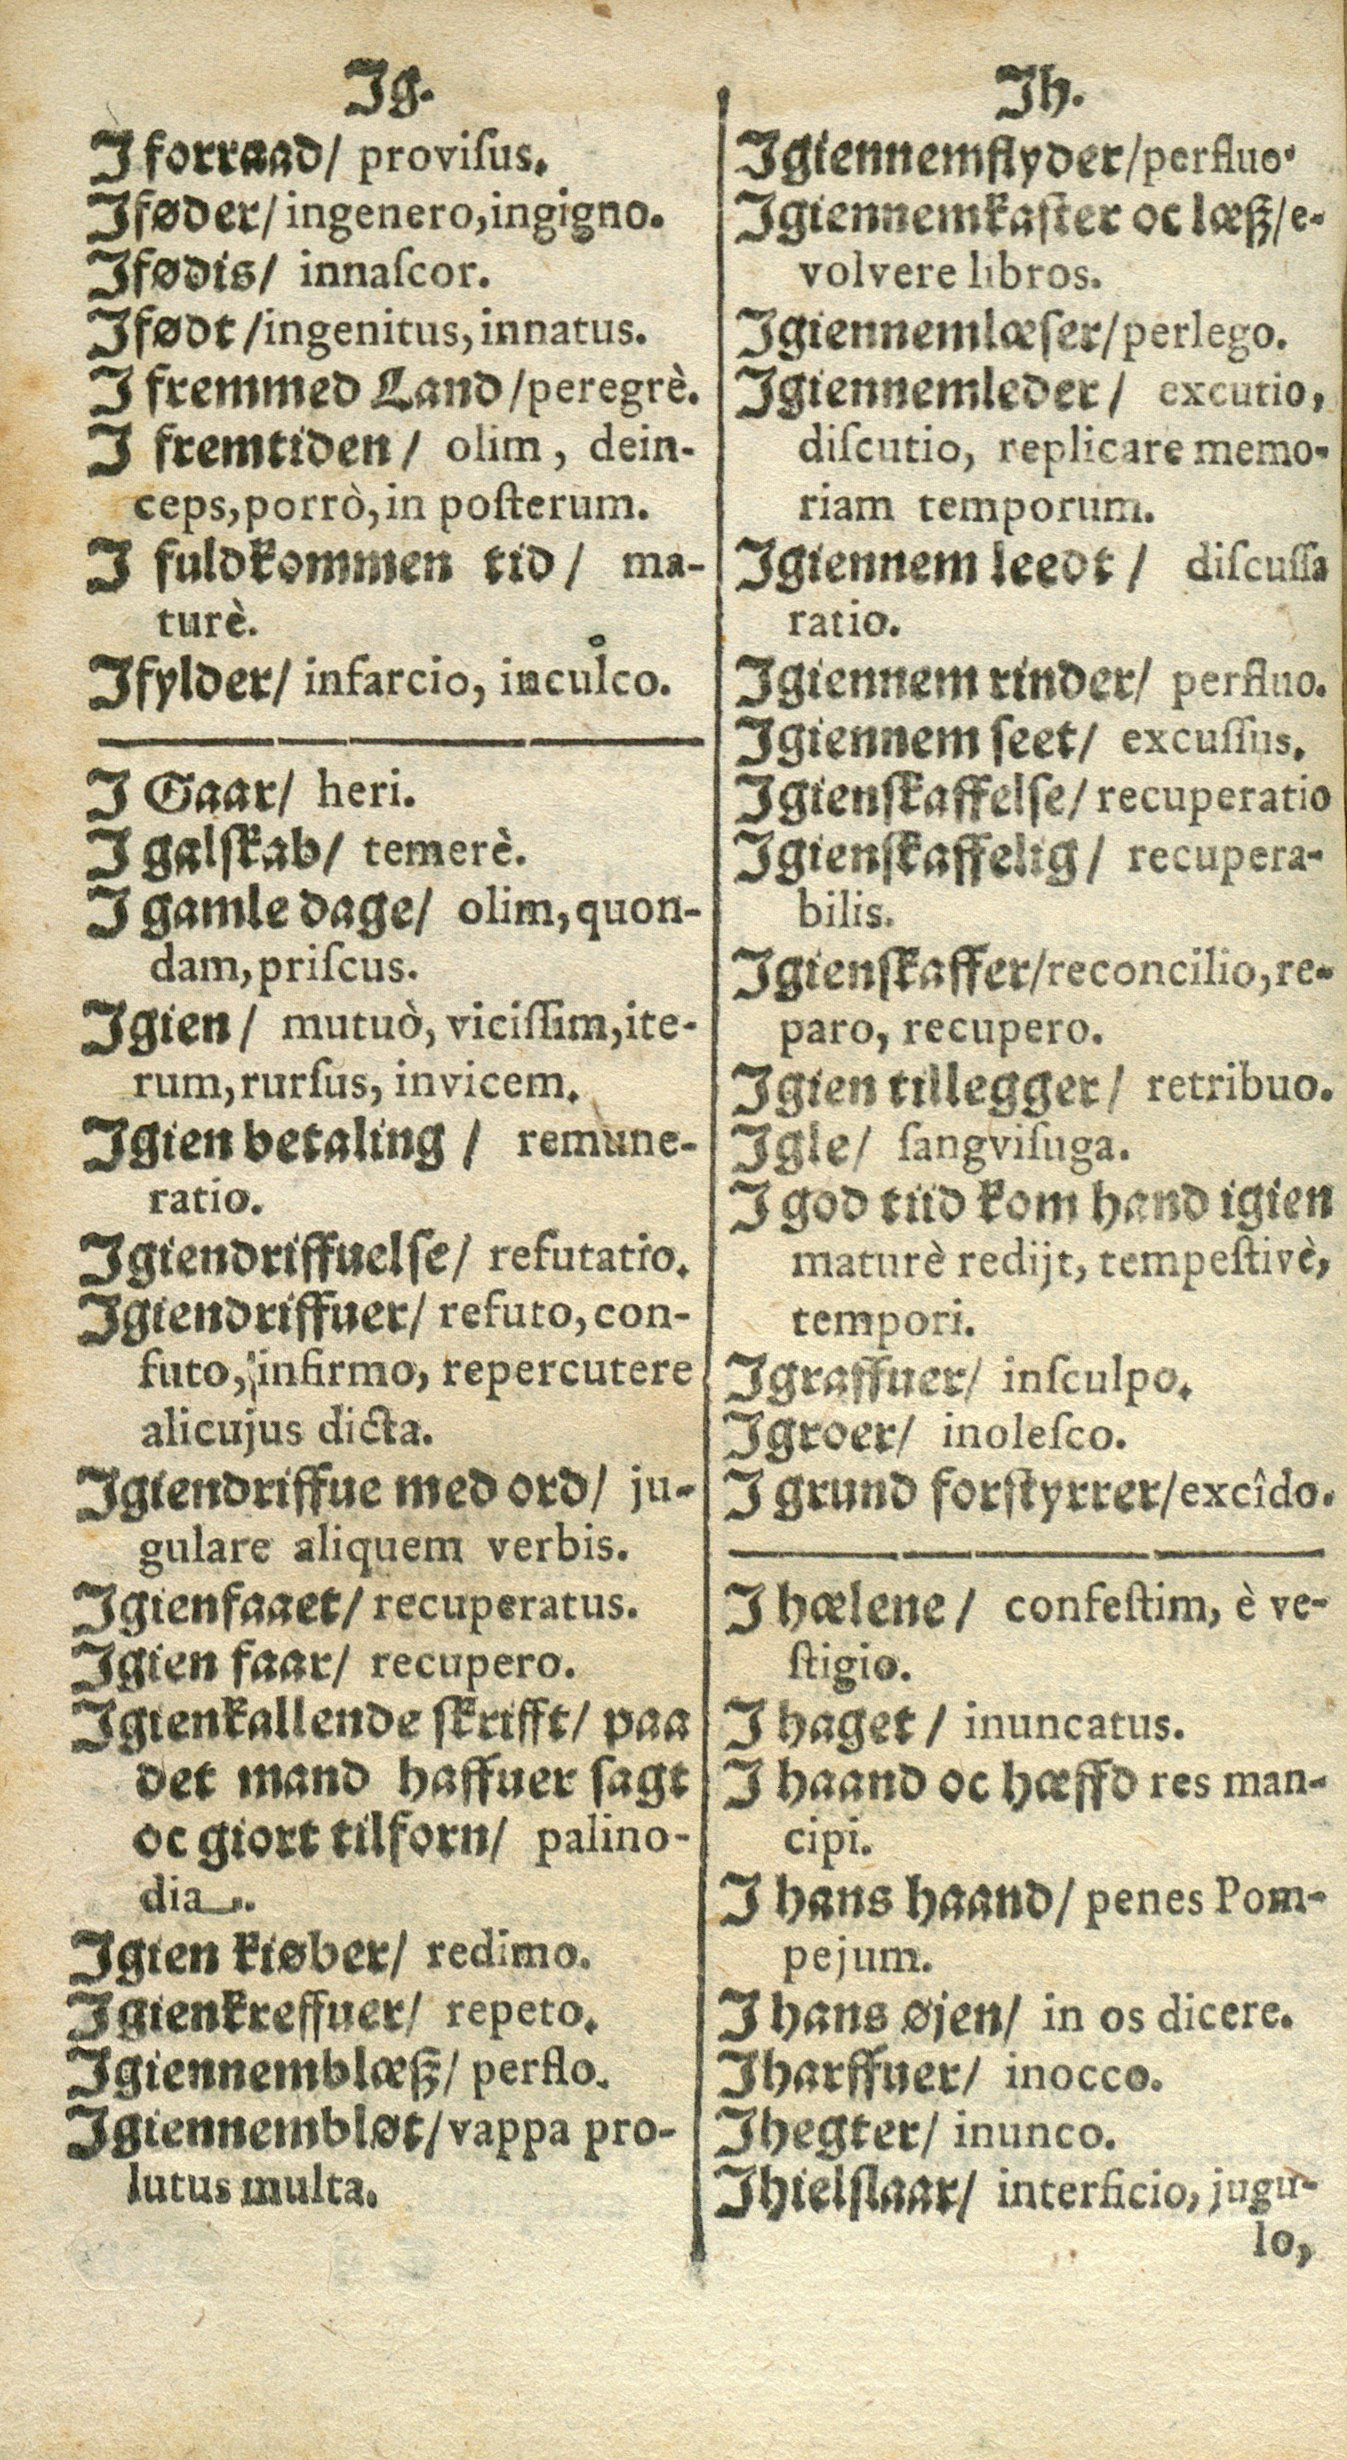 Ig.
I forraad/ proviſus.
Iføder/ ingenero, ingigno.
Ifødis/ innaſcor.
Ifødt /ingenitus, innatus.
I fremmed Land /peregrè.
I fremtiden/ olim, dein-
ceps, porrò, in poſterum.
I fuldkommen tid/ ma-
turè.
Ifylder/ infarcio, inculco.
I Gaar/ heri.
I galſkab/ temerè.
I gamle dage/ olim, quon-
dam, priſcus.
Igien/ mutuò, viciſſim, ite-
rum, rurſus, invicem.
Igien betaling / remune-
ratio.
Igiendriffuelſe/ refutatio.
Igiendriffuer/ refuto, con-
futo, infirmo, repercutere
alicujus dicta.
Igiendriffue med ord/ ju-
gulare aliquem verbis.
Igienfaaet/ recuperatus.
Igien faar/ recupero.
Igienkallende ſkrifft/ paa
det mand haffuer ſagt
oc giort tilforn/ palino-
dia.
Igien kiøber/ redimo.
Igienkreffuer/ repeto.
Igiennemblæß/ perflo.
Igiennembløt/ vappa pro-
lutus multa.
Ih.
Igiennemflyder/ perfluo.
Igiennemkaſter oc læß/ e-
volvere libros.
Igiennemlæſer/ perlego.
Igiennemleder/ excutio,
diſcutio, replicare memo-
riam temporum.
Igiennem leedt / diſcuſſa
ratio.
Igiennem rinder/ perfluo.
Igiennem ſeet/ excuſſus.
Igienſkaffelſe/ recuperatio
Igienſkaffelig/ recupera-
bilis.
Igienſkaffer/ reconcilio, re-
paro, recupero.
Igien tillegger/ retribuo.
Igle/ ſangviſuga.
I god tiid kom hand igien
maturè redijt, tempeſtivè,
tempori.
Igraffuer/ inſculpo.
Igroer/ inoleſco.
I grund forſtyrrer/ excîdo.
I hælene/ confeſtim, è ve-
ſtigio.
I haget / inuncatus.
I haand oc hæffd res man-
cipi.
I hans haand/ penes Pom-
pejum.
I hans øjen/ in os dicere.
Iharffuer/ inocco.
Ihegter/ inunco.
Ihielſlaar/ interficio, jugu-
lo,